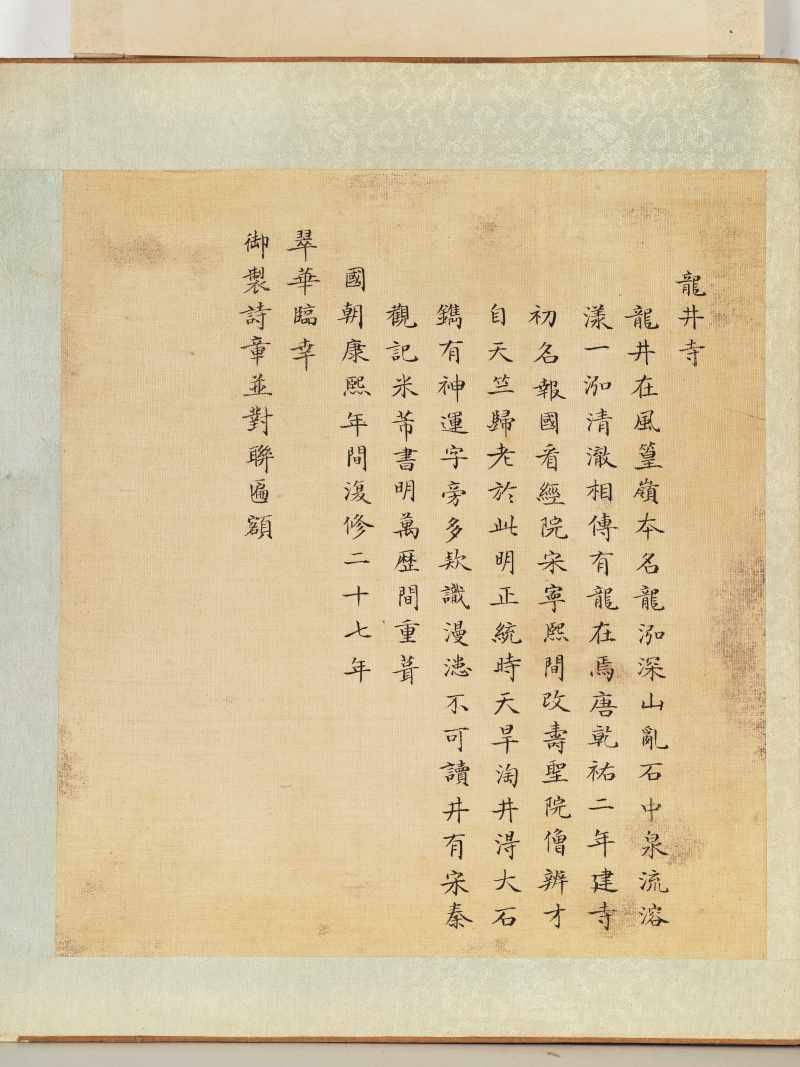 龍井寺
龍井在風篁嶺本名龍泓深山亂石中泉流溶
漾一泓清澈相傳有龍在焉唐乾祐二年建寺
初名報國看經院宋寧熙間改壽聖院僧辨才
自天竺歸老於此明正統時天旱淘井得大石
鐫有神運字旁多欵識漫漶不可讀井有宋秦
觀記米芾書明萬歷間重葺
國朝康熙年間復修二十七年
翠華臨幸
御製詩章並對聯匾額